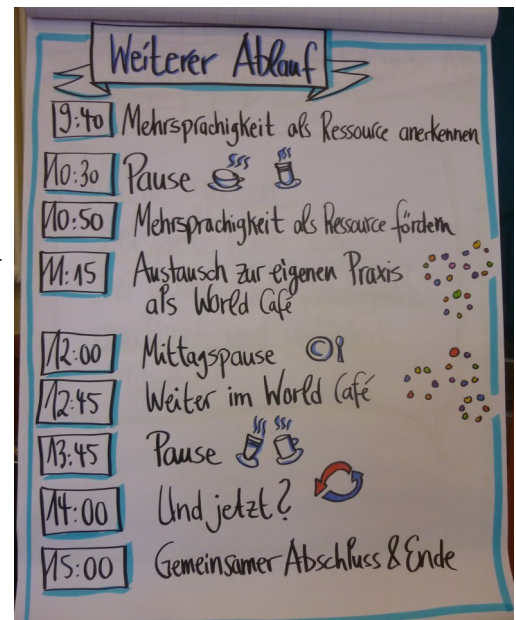 Weiterer Ablauf
9:40 Mehrsprachigkeit als Ressource anerkennen
10:30 Pause
10:50 Mehrsprachigkeit als Ressource fördern
11:15 Austausch zur eigenen Praxis
als World Café
12:00 Mittagspause
12:45 Weiter im World Café
13:45 Pause
14:00 Und jetzt?
15:00 Gemeinsamer Abschluss & Ende